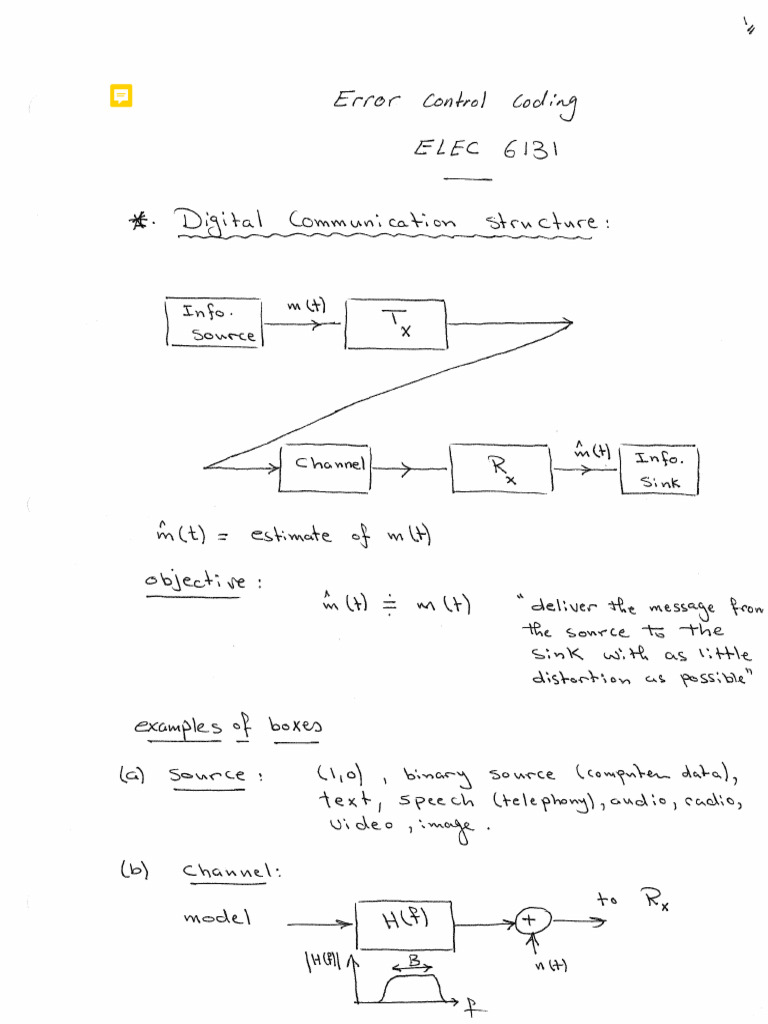 1/4
Error Control Coding
ELEC 6131
*. Digital Communication Structure:
Info. Source
m(t)
Tx
Channel
Rx
m̂(t)
Info. Sink
m̂(t) = estimate of m(t)
objective:
m̂(t) ≐ m(t) "deliver the message from
the source to the
sink with as little
distortion as possible"
examples of boxes
(a) source: (1,0), binary source (computer data),
text, speech (telephony), audio, radio,
video, image.
(b) channel:
model H(f) + to Rx
n(t)
|H(f)| B f